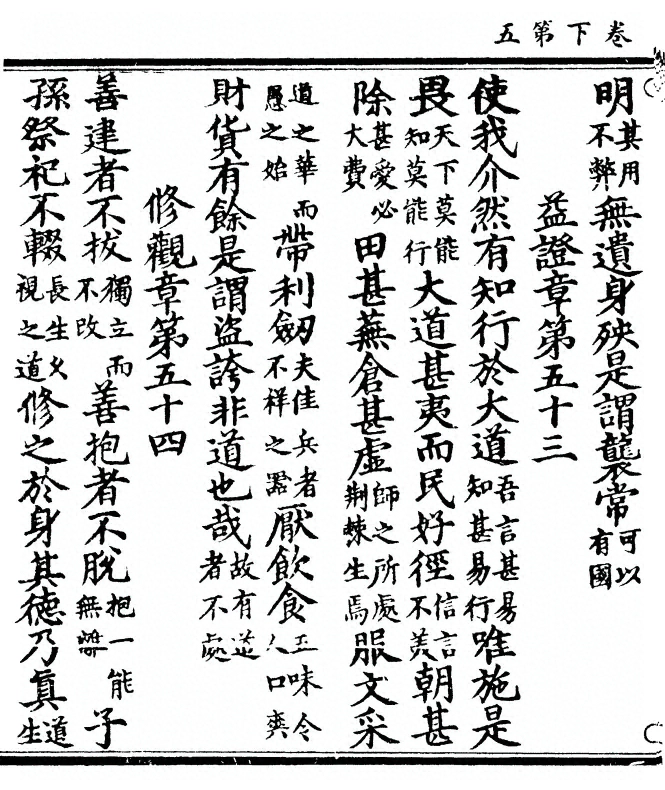 卷下第五
明其用不弊無遺身殃是謂襲常可以有國
益證章第五十三
使我介然有知行於大道吾言甚易知甚易行唯施是
畏天下莫能知莫能行大道甚夷而民好徑信言不美朝甚
除甚愛必大費田甚蕪倉甚虛師之所處荊棘生焉服文采
道之華而愚之始帶利劒夫佳兵者不祥之器厭飲食五味令人口爽
財貨有餘是謂盜誇非道也哉故有道者不處
修觀章第五十四
善建者不拔獨立而不改善抱者不脫抱一能無離子
孫祭祀不輟長生久視之道修之於身其德乃真道生